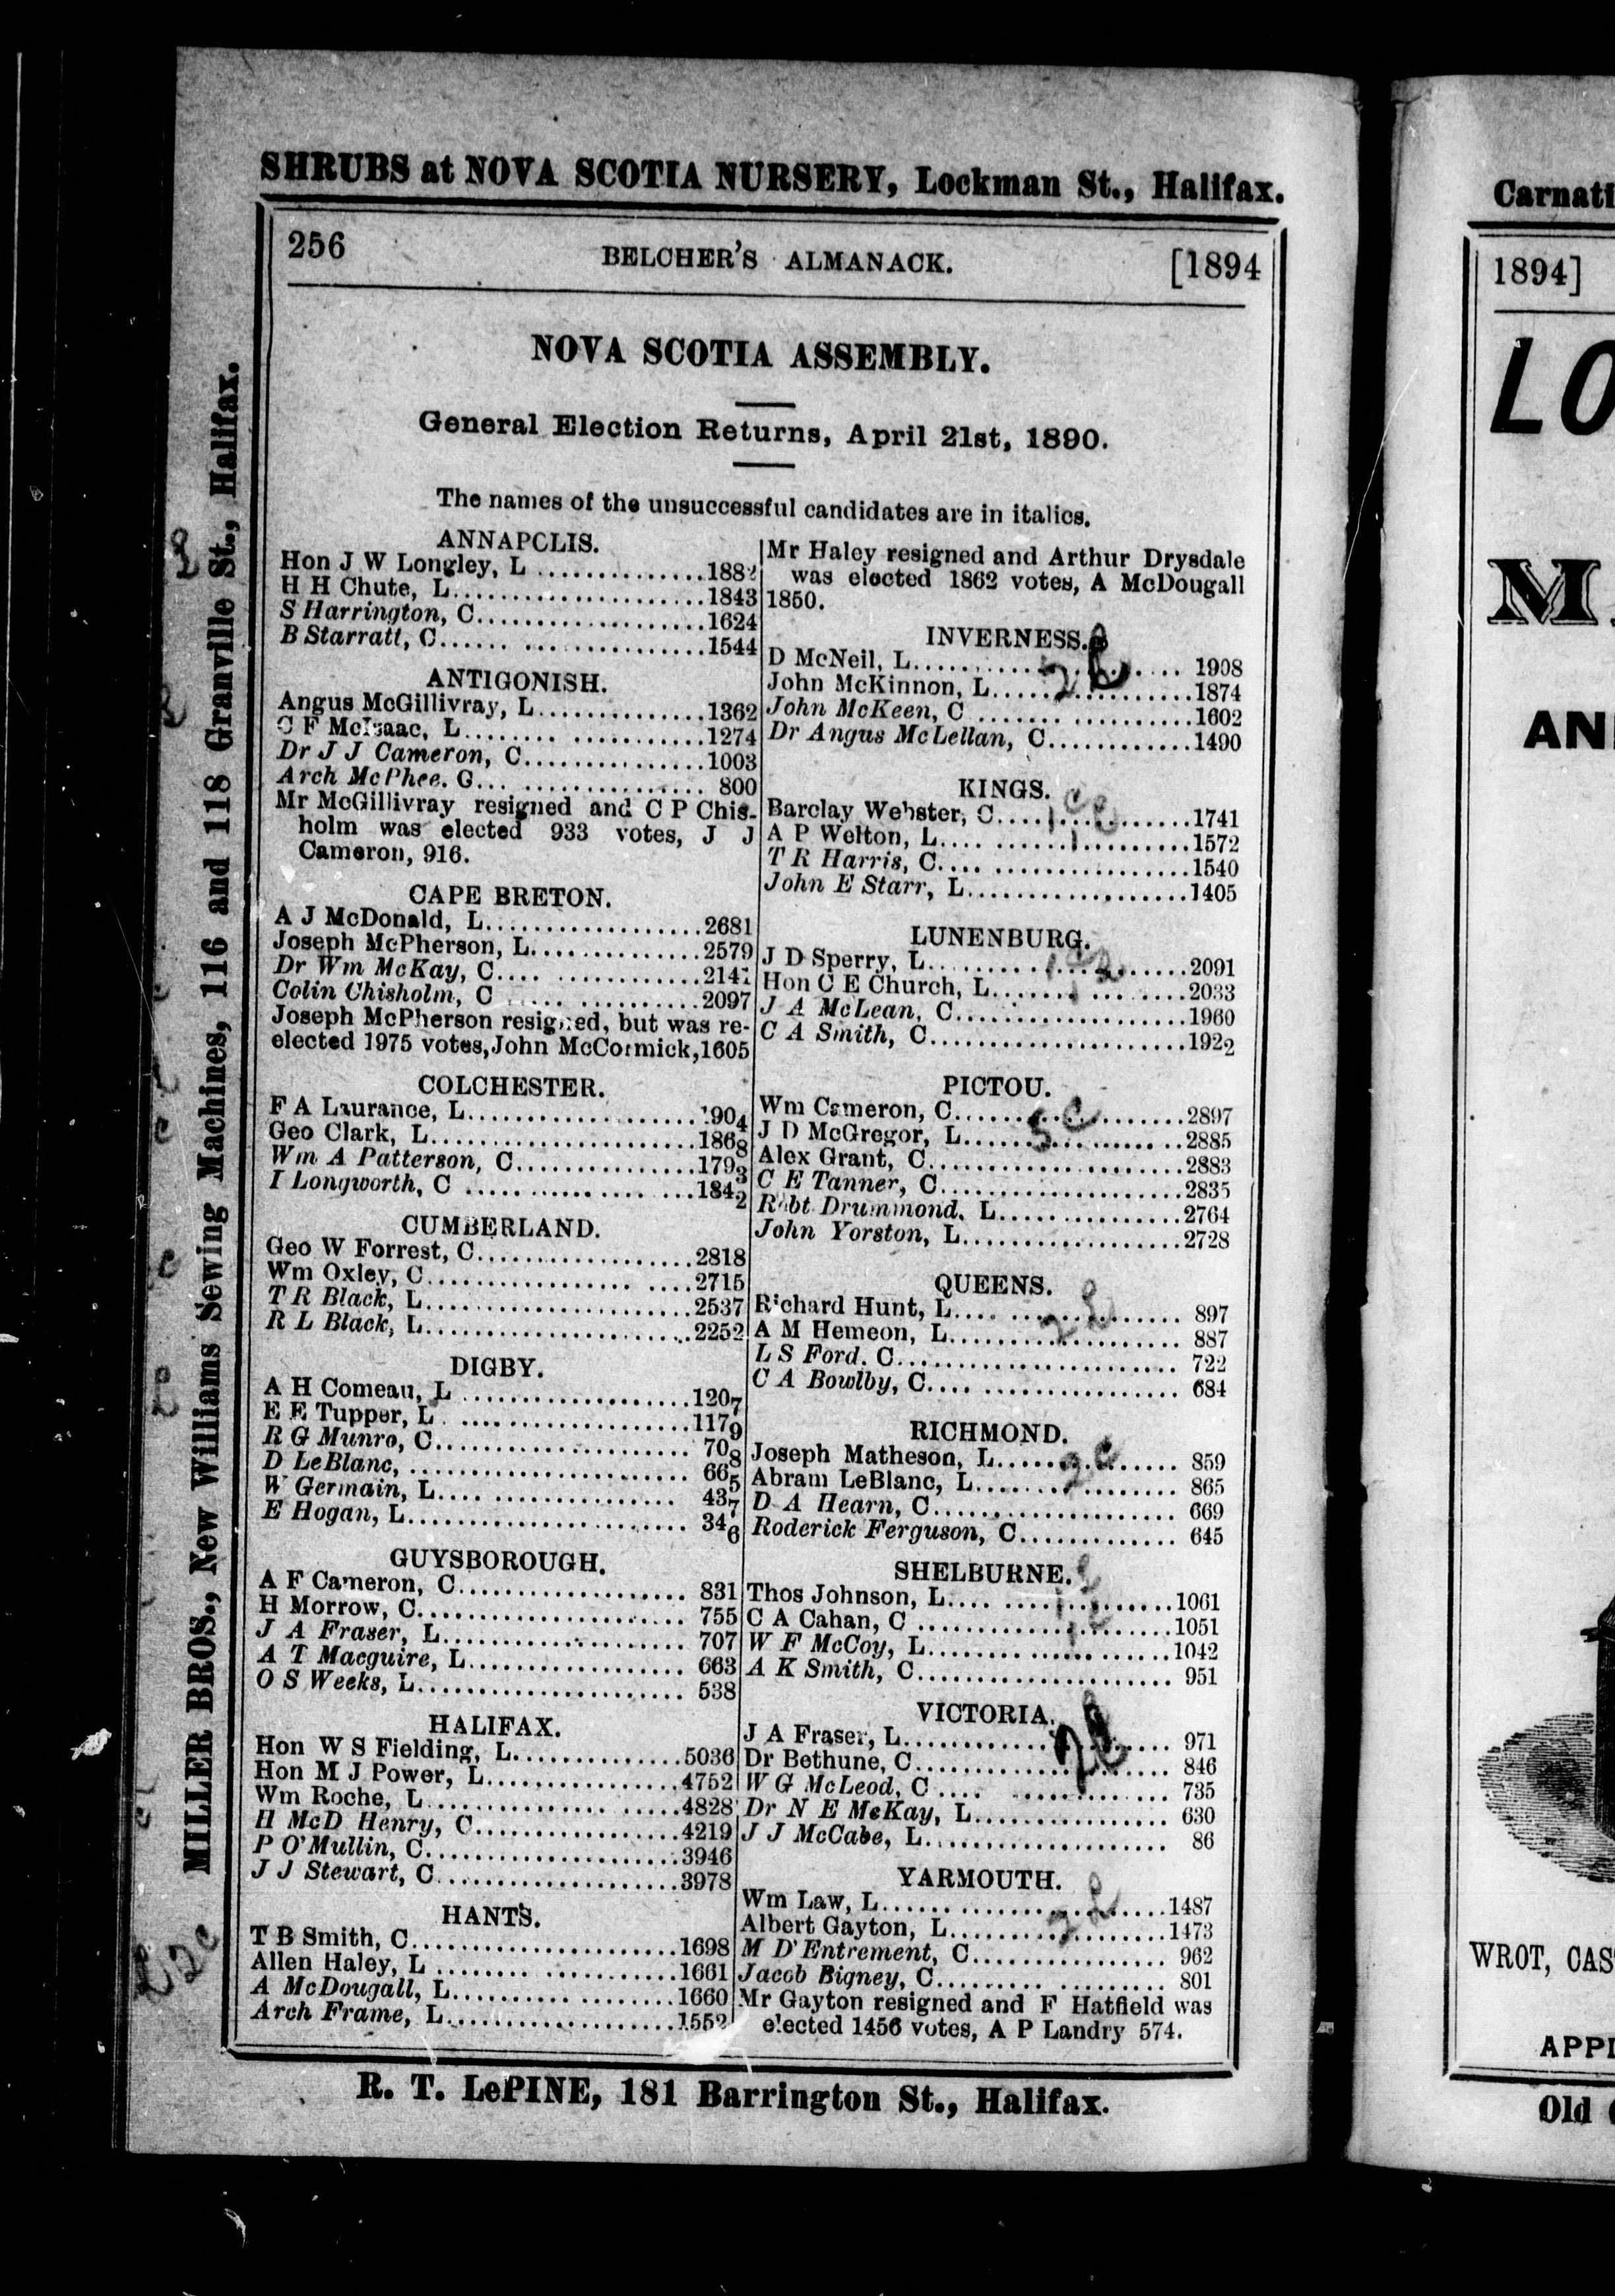 SHRUBS at NOVA SCOTIA NURSERY, Lockman St., Halifax.
256 BELCHER'S ALMANACK. [1894
NOVA SCOTIA ASSEMBLY.
General Election Returns, April 21st, 1890.
The names of the unsuccessful candidates are in italics.
ANNAPOLIS.
Hon J W Longley, L ...............1882
H H Chute, L......................1843
S Harrington, C...................1624
B Starratt, C...... ................1544
ANTIGONISH.
Angus McGillivray, L..............1362
C F McIsaac, L........ ...........1274
Dr J J Cameron, C...............1003
Arch McPhee. C... ................ 800
Mr McGillivray resigned and C P Chis-
holm was elected 933 votes, J J
Cameron, 916.
CAPE BRETON.
A J McDonald, L..................2681
Joseph McPherson, L..............2579
Dr Wm McKay, C.... ............2141
Colin Chisholm, C ..... ...........2097
Joseph McPherson resigned, but was re-
elected 1975 votes, John McCormick, 1605
COLCHESTER.
F A Laurance, L...................1904
Geo Clark, L......................1868
Wm A Patterson, C................1793
I Longworth, C ...................1842
CUMBERLAND.
Geo W Forrest, C..................2818
Wm Oxley, C................. ....2715
T R Black, L......................2537
R L Black, L......................2252
DIGBY.
A H Comeau, L ...................1207
E E Tupper, L . ...................1179
R G Munro, C...................... 708
D LeBlanc, ........................ 665
W Germain, L.... ................ 437
E Hogan, L........................ 346
GUYSBOROUGH.
A F Cameron, C................... 831
H Morrow, C....................... 755
J A Fraser, L..................... 707
A T Macguire, L................... 663
O S Weeks, L....................... 538
HALIFAX.
Hon W S Fielding, L..............5036
Hon M J Power, L................4752
Wm Roche, L............... .....4828
H McD Henry, C.................4219
P O'Mullin, C.....................3946
J J Stewart, C....................3978
HANTS.
T B Smith, C......................1698
Allen Haley, L ........ ...........1661
A McDougall, L.......... ........1660
Arch Frame, L....................1552
Mr Haley resigned and Arthur Drysdale
was elected 1862 votes, A McDougall
1850.
INVERNESS.
D McNeil, L...................... 1908
John McKinnon, L.................1874
John McKeen, C ....... ..........1602
Dr Angus McLellan, C............1490
KINGS.
Barclay Webster, C................1741
A P Welton, L.... ................1572
T R Harris, C.... .................1540
John E Starr, L...................1405
LUNENBURG.
J D Sperry, L.....................2091
Hon C E Church, L....... ........2033
J A McLean, C....................1960
C A Smith, C......................1922
PICTOU.
Wm Cameron, C....................2897
J D McGregor, L..................2885
Alex Grant, C.....................2883
C E Tanner, C.....................2835
Robt Drummond, L...............2764
John Yorston, L...................2728
QUEENS.
Richard Hunt, L.... ............. 897
A M Hemeon, L................... 887
L S Ford. C........................ 722
C A Bowlby, C.... ................ 684
RICHMOND.
Joseph Matheson, L............... 859
Abram LeBlanc, L................. 865
D A Hearn, C..................... 669
Roderick Ferguson, C............. 645
SHELBURNE.
Thos Johnson, L.... .............1061
C A Cahan, C ....................1051
W F McCoy, L......... ..........1042
A K Smith, C...................... 951
VICTORIA.
J A Fraser, L...................... 971
Dr Bethune, C..................... 846
W G McLeod, C .... ............. 735
Dr N E McKay, L................ 630
J J McCabe, L.................... 86
YARMOUTH.
Wm Law, L...... ................1487
Albert Gayton, L..................1473
M D'Entrement, C................ 962
Jacob Bigney, C.......... ......... 801
Mr Gayton resigned and F Hatfield was
elected 1456 votes, A P Landry 574.
R. T. LePINE, 181 Barrington St., Halifax.
MILLER BROS., New Williams Sewing Machines, 116 and 118 Granville St., Halifax.
Carnati
1894]
LO
M
AN
WROT, CAS
APPL
Old